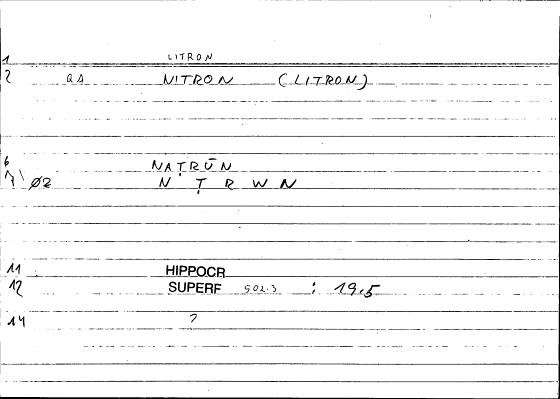 1 LITRON
2 NITRON (LITRON)
6 NAṬRŪN
7 Ø2 N Ṭ R W N
11 HIPPOCR
12 SUPERF 902.3 : 19.5
14 ?